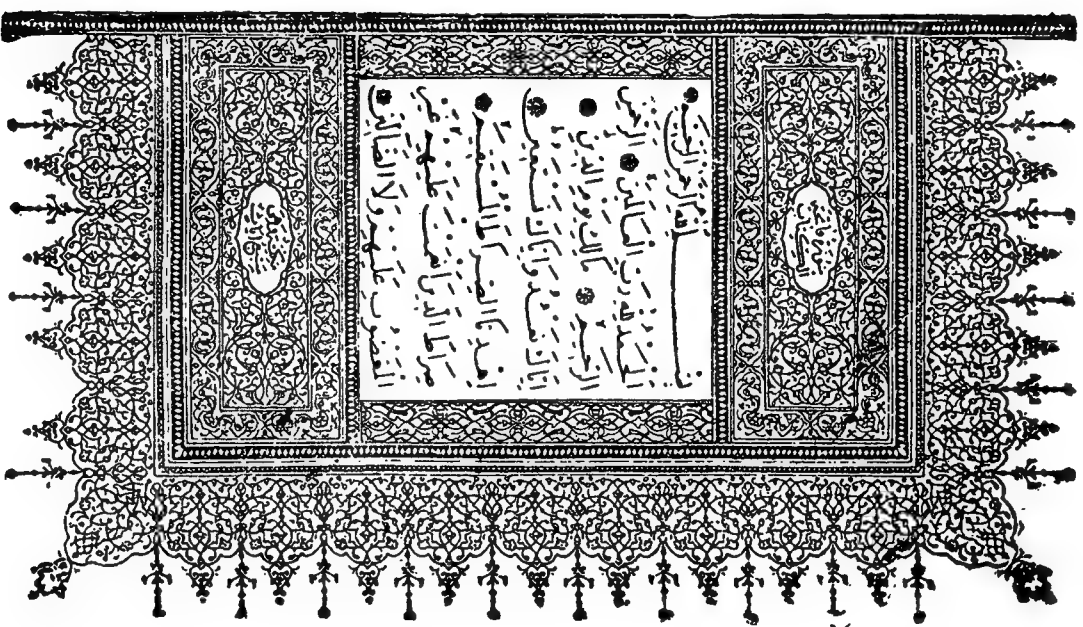 سورة فاتحة
الكتاب
بِسْمِ اللَّهِ الرَّحْمَنِ الرَّحِيمِ
الْحَمْدُ لِلَّهِ رَبِّ الْعَالَمِينَ الرَّحْمَنِ
الرَّحِيمِ مَالِكِ يَوْمِ الدِّينِ
إِيَّاكَ نَعْبُدُ وَإِيَّاكَ نَسْتَعِينُ
اهْدِنَا الصِّرَاطَ الْمُسْتَقِيمَ
صِرَاطَ الَّذِينَ أَنْعَمْتَ عَلَيْهِمْ غَيْرِ
الْمَغْضُوبِ عَلَيْهِمْ وَلَا الضَّالِّينَ